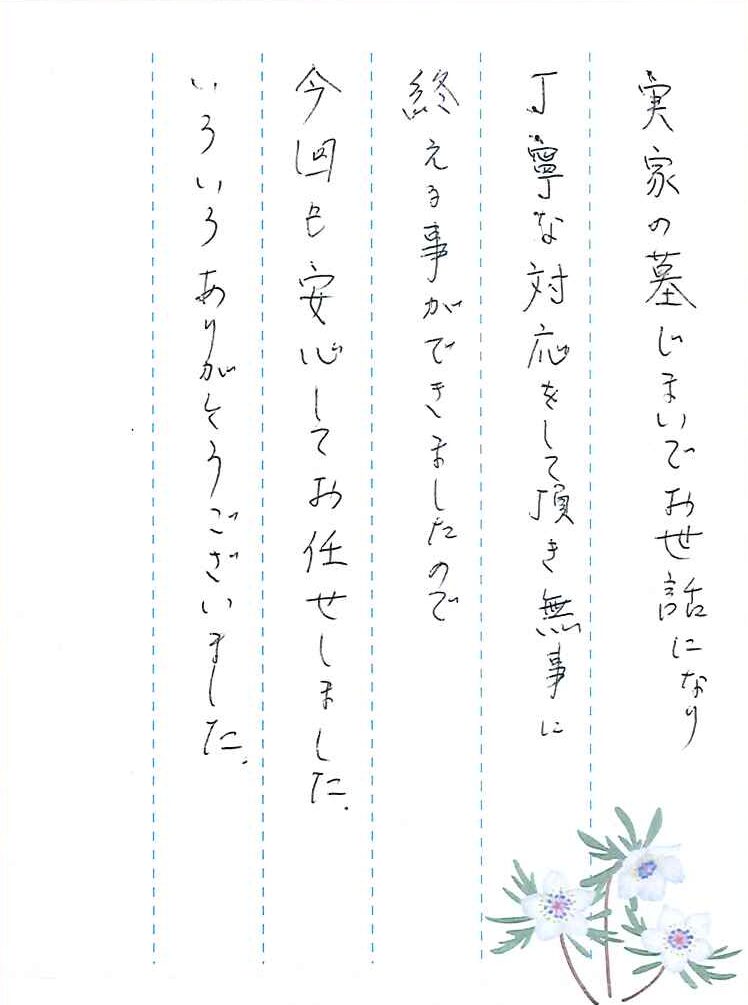 実家の墓じまいでお世話になり
丁寧な対応をして頂き無事に
終える事ができましたので
今回も安心してお任せしました.
いろいろありがとうございました.